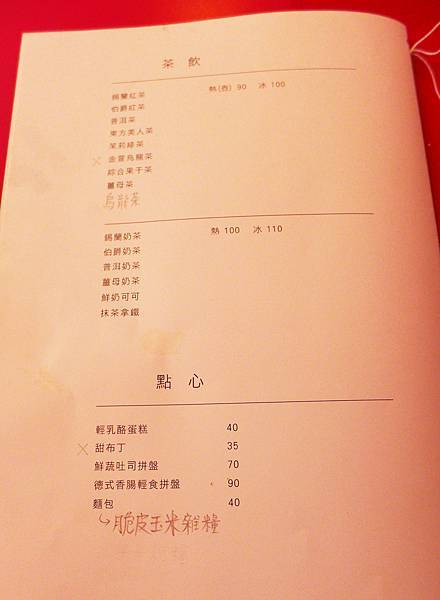 茶 飲
錫蘭紅茶 熱(壺) 90 冰 100
伯爵紅茶
普洱茶
東方美人茶
茉莉綠茶
× 金萱烏龍茶
綜合果干茶
薑母茶
烏龍茶
錫蘭奶茶 熱 100 冰 110
伯爵奶茶
普洱奶茶
薑母奶茶
鮮奶可可
抹茶拿鐵
點 心
輕乳酪蛋糕 40
× 甜布丁 35
鮮蔬吐司拼盤 70
德式香腸輕食拼盤 90
麵包 40
脆皮玉米雜糧